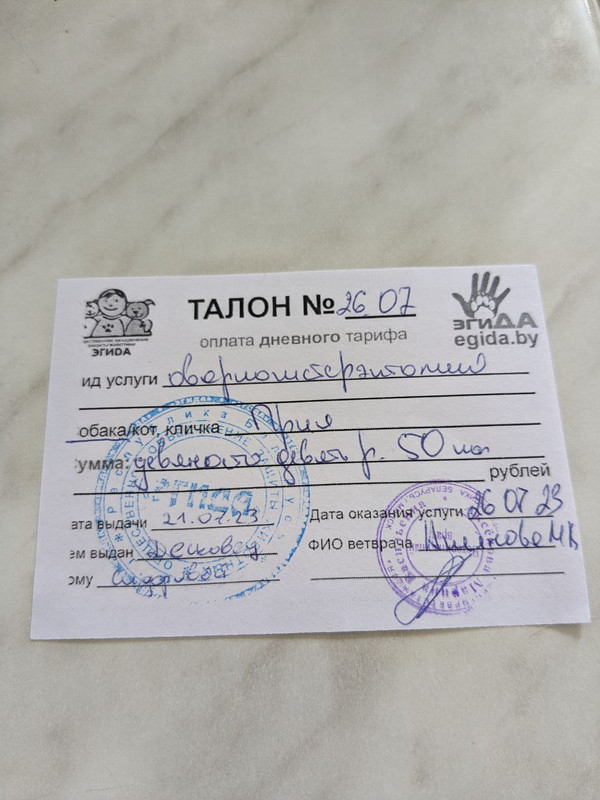 ТАЛОН № 26 07
оплата дневного тарифа
ЭГИДА
ЭГИДА
egida.by
ид услуги овариогистерэктомия
обака/кот, кличка Ария
умма: девяносто девять р. 50 коп
рублей
ата выдачи 21.07.23
Дата оказания услуги 26 07 23
ем выдан
ФИО ветврача
ому